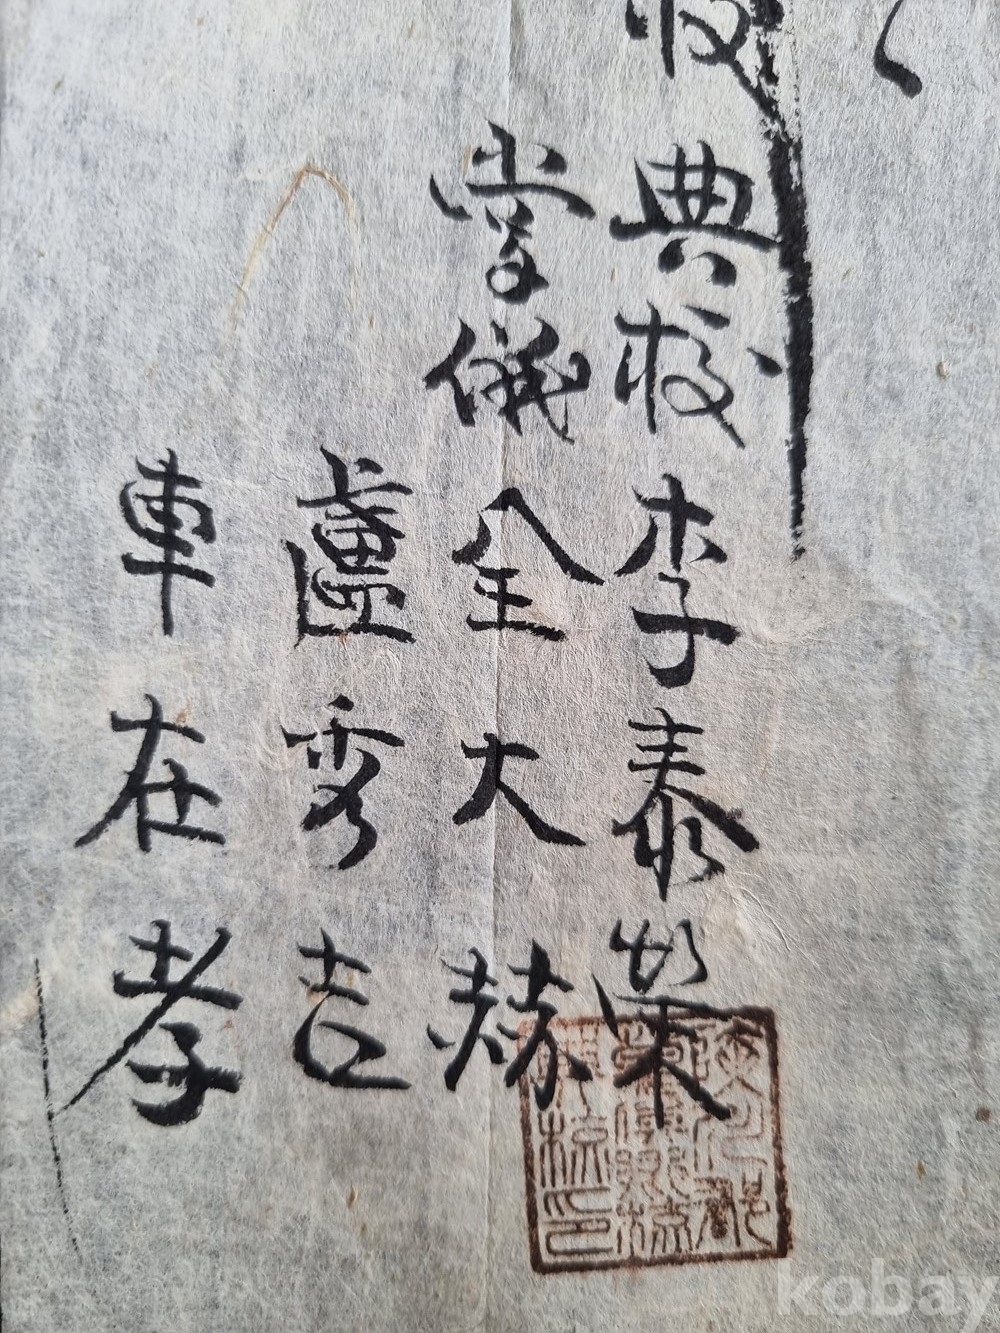 典校 李泰榮
掌儀 全大赫
盧秀吉
車在孝
kobay